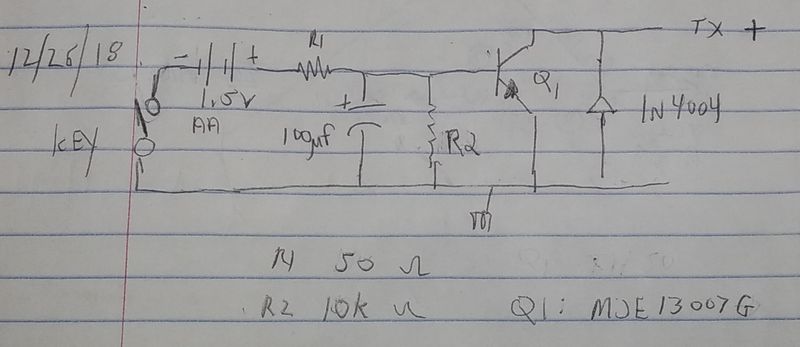 12/26/18
- +
R1
TX +
1.5v
AA
KEY
+
100µf
R2
Q1
1N4004
R1 50 Ω
R2 10k Ω
Q1: MJE13007G